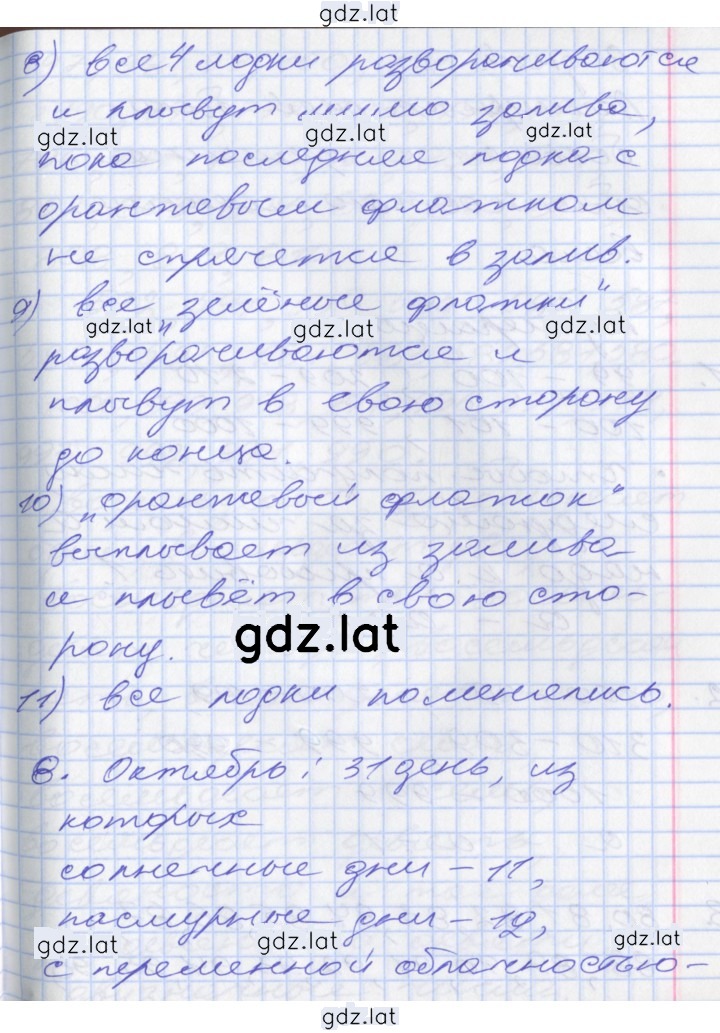 gdz.lat
8) все 4 лодки разворачиваются
и плывут мимо залива,
gdz.lat gdz.lat gdz.lat
пока последняя лодка с
оранжевым флажком
не спрячется в залив.
9) все „зелёные флажки“
gdz.lat gdz.lat gdz.lat
разворачиваются и
плывут в свою сторону
до конца.
10) „оранжевый флажок“
выплывает из залива
и плывёт в свою сто-
gdz.lat
рону.
11) все лодки поменялись.
6. Октябрь: 31 день, из
которых
солнечные дни – 11,
пасмурные дни – 12,
gdz.lat gdz.lat gdz.lat
с переменной облачностью –
gdz.lat